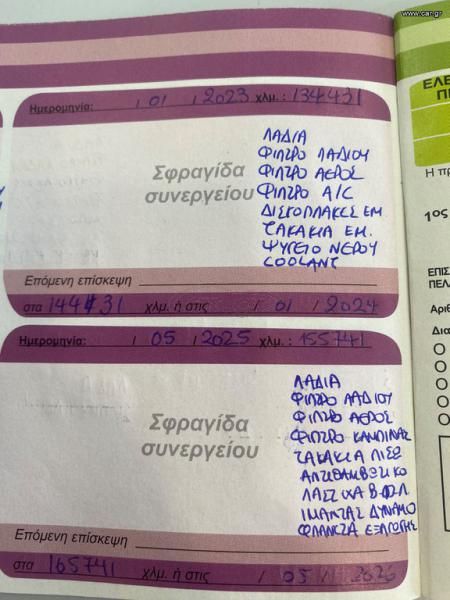 www.car.gr
Ημερομηνία: / 01 / 2023 χλμ.: 134431
ΛΑΔΙΑ
ΦΙΛΤΡΟ ΛΑΔΙΟΥ
Σφραγίδα ΦΙΛΤΡΟ ΑΕΡΟΣ
συνεργείου ΦΙΛΤΡΟ A/C
ΔΙΣΚΟΠΛΑΚΕΣ ΕΜ.
ΤΑΚΑΚΙΑ ΕΜ.
ΨΥΓΕΙΟ ΝΕΡΟΥ
COOLANT
Επόμενη επίσκεψη
στα 144431 χλμ. ή στις / 01 / 2024
Ημερομηνία: / 05 / 2025 χλμ.: 155741
ΛΑΔΙΑ
ΦΙΛΤΡΟ ΛΑΔΙΟΥ
Σφραγίδα ΦΙΛΤΡΟ ΑΕΡΟΣ
συνεργείου ΦΙΛΤΡΟ ΚΑΜΠΙΝΑΣ
ΤΑΚΑΚΙΑ ΠΙΣΩ
ΑΝΤΙΘΑΜΒΩΤΙΚΟ
ΛΑΣΤΙΧΑ
ΙΜΑΝΤΑΣ ΔΥΝΑΜΟ
ΦΛΑΝΤΖΑ ΕΞΑΓΩΓΗΣ
Επόμενη επίσκεψη
στα 165741 χλμ. ή στις / 05 / 2026
ΕΛΕ
Π
Η πρ
1ος
ΕΠΙΣ
ΠΕΛ
Αριθ
Δια